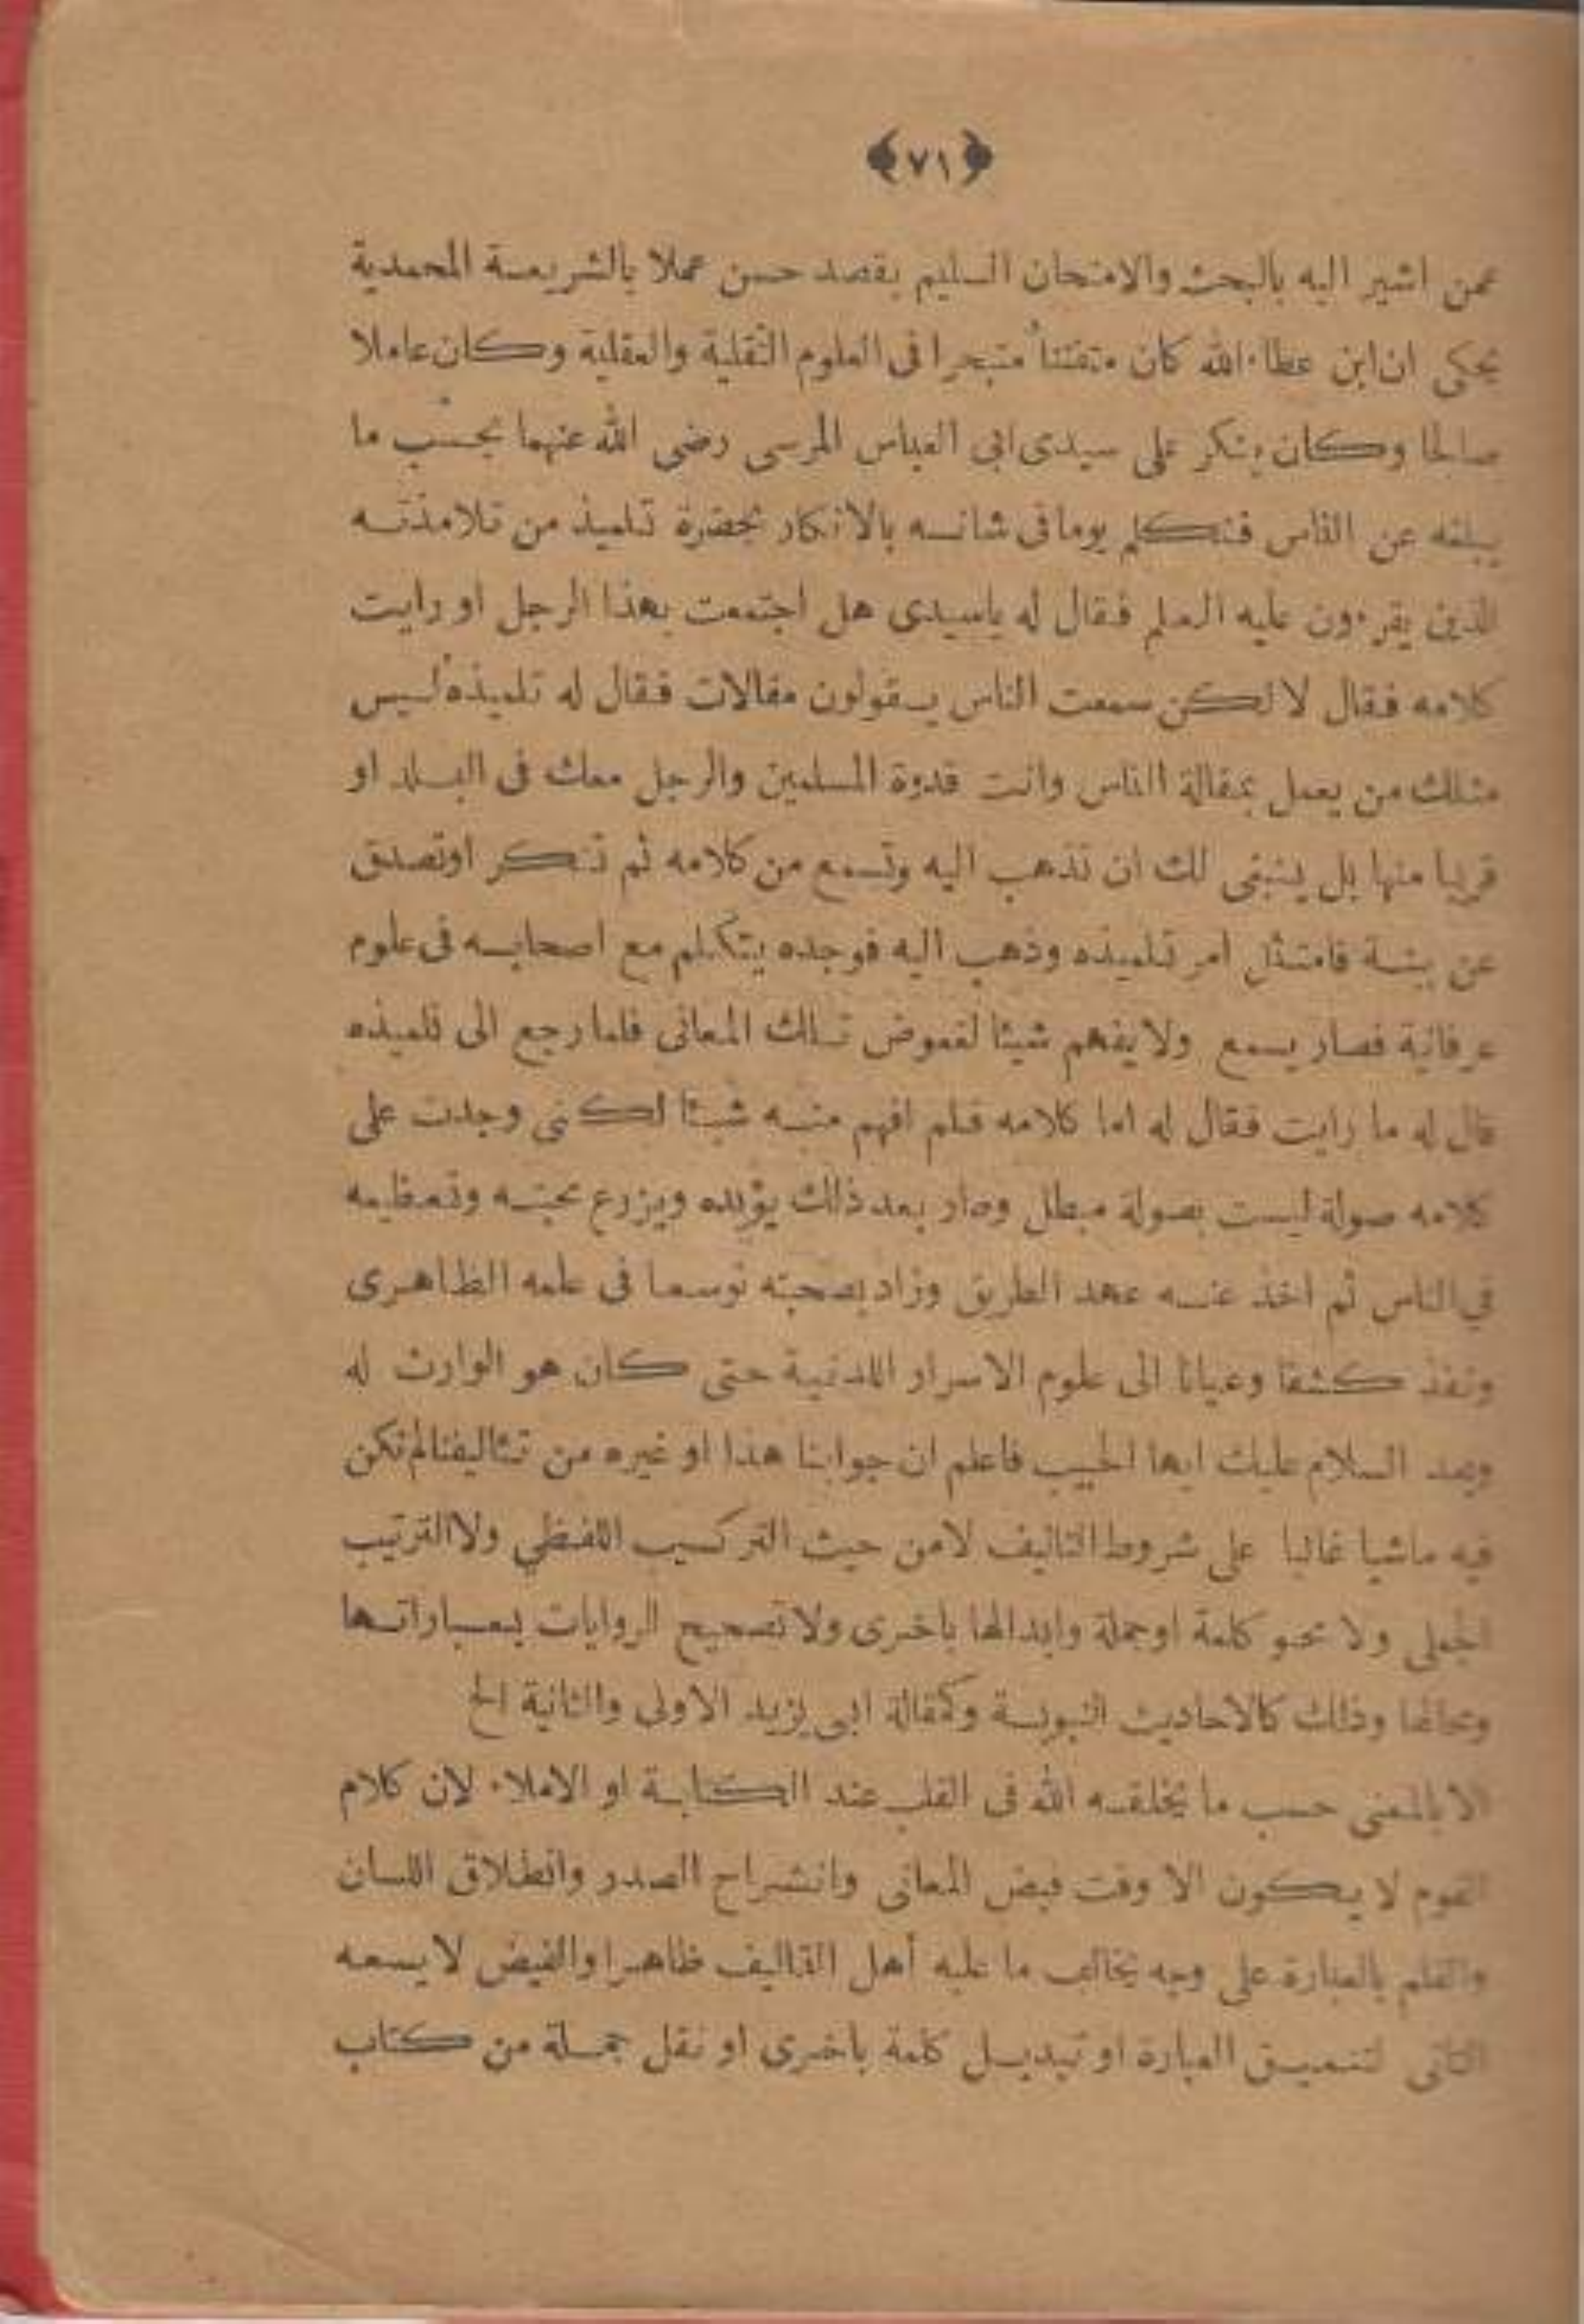 ﴿٧١﴾
عمن اشير اليه بالبحث والامتحان السليم بقصد حسن عملا بالشريعة المحمدية
يحكى ان ابن عطاء الله كان متفننا متبحرا فى العلوم النقلية والعقلية وكان عاملا
صالحا وكان ينكر على سيدى ابى العباس المرسى رضى الله عنهما بحسب ما
يبلغه عن الناس فتكلم يوما فى شانه بالانكار بحضرة تلميذ من تلامذته
الذين يقرءون عليه العلم فقال له ياسيدى هل اجتمعت بهذا الرجل او رايت
كلامه فقال لا لكن سمعت الناس يقولون مقالات فقال له تلميذه ليس
مثلك من يعمل بمقالة الناس وانت قدوة المسلمين والرجل معك فى البلد او
قريبا منها بل ينبغى لك ان تذهب اليه وتسمع من كلامه ثم تنكر اوتصدق
عن بينة فامتثل امر تلميذه وذهب اليه فوجده يتكلم مع اصحابه فى علوم
عرفانية فصار يسمع ولا يفهم شيئا لغموض تلك المعانى فلما رجع الى تلميذه
قال له ما رايت فقال له اما كلامه فلم افهم منه شيئا لكنى وجدت على
كلامه صولة ليست بصولة مبطل وصار بعد ذلك يؤيده ويزرع محبته وتعظيمه
في الناس ثم اخذ عنه عهد الطريق وزاد بصحبته توسعا فى علمه الظاهرى
ونفذ كشفا وعيانا الى علوم الاسرار اللدنية حتى كان هو الوارث له
وبعد السلام عليك ايها الحبيب فاعلم ان جوابنا هذا او غيره من تئاليفنا لم نكن
فيه ماشيا غالبا على شروط التاليف لا من حيث التركيب اللفظي ولا الترتيب
الجملى ولا محو كلمة اوجملة وابدالها باخرى ولا تصحيح الروايات بعباراتها
ومحالها وذلك كالاحاديث النبوية وكمقالة ابى يزيد الاولى والثانية الخ
الا بالمعنى حسب ما يخلقه الله فى القلب عند الكتابة او الاملاء لان كلام
القوم لا يكون الا وقت فيض المعانى وانشراح الصدر وانطلاق اللسان
والقلم بالعبارة على وجه يخالف ما عليه أهل التاليف ظاهرا والفيض لا يسعه
التانى لتنميق العبارة او تبديل كلمة بأخرى او نقل جملة من كتاب